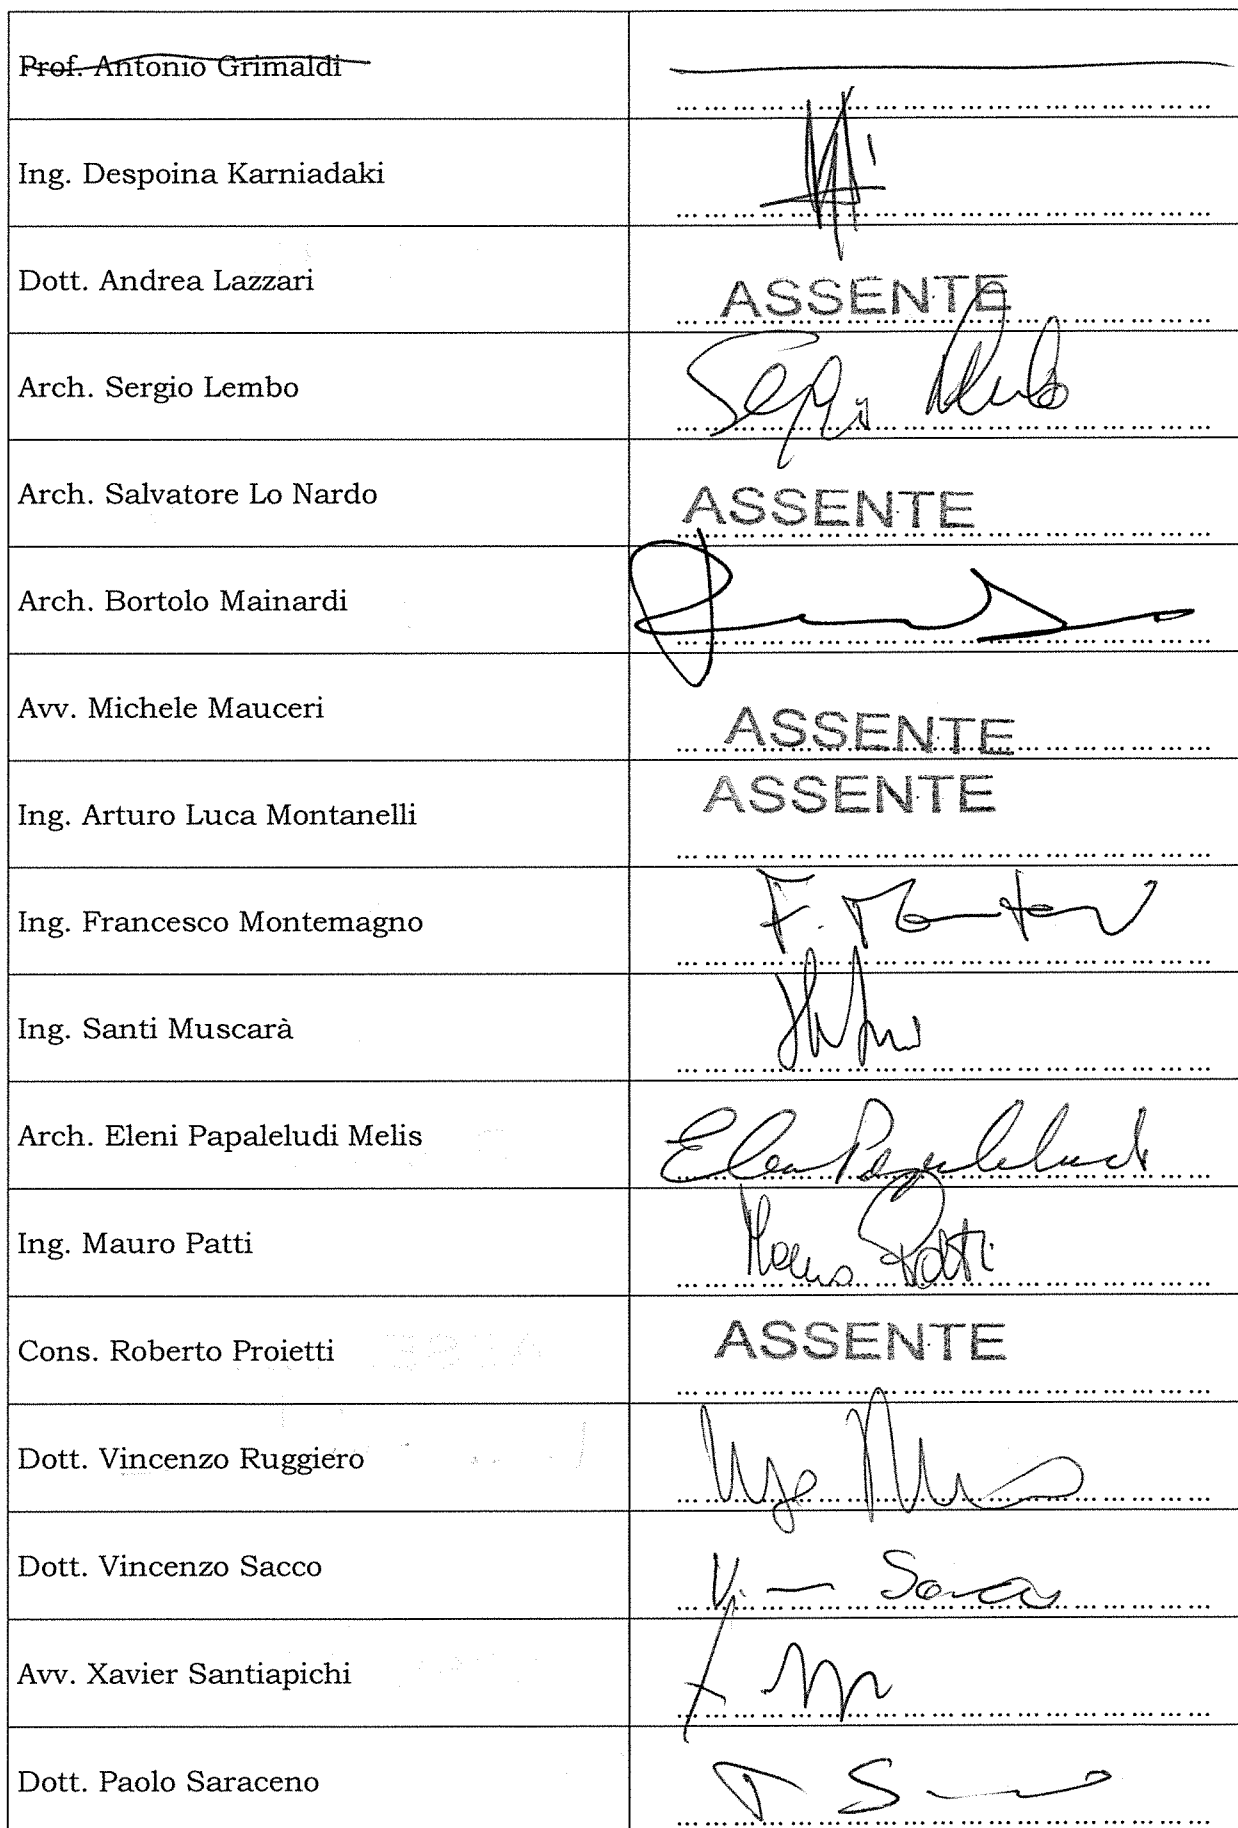 Prof. Antonio Grimaldi
Ing. Despoina Karniadaki
Dott. Andrea Lazzari
ASSENTE
Arch. Sergio Lembo
Sergio Lembo
Arch. Salvatore Lo Nardo
ASSENTE
Arch. Bortolo Mainardi
Avv. Michele Mauceri
ASSENTE
Ing. Arturo Luca Montanelli
ASSENTE
Ing. Francesco Montemagno
Ing. Santi Muscarà
Arch. Eleni Papaleludi Melis
Ing. Mauro Patti
Mauro Patti
Cons. Roberto Proietti
ASSENTE
Dott. Vincenzo Ruggiero
Dott. Vincenzo Sacco
Avv. Xavier Santiapichi
Dott. Paolo Saraceno